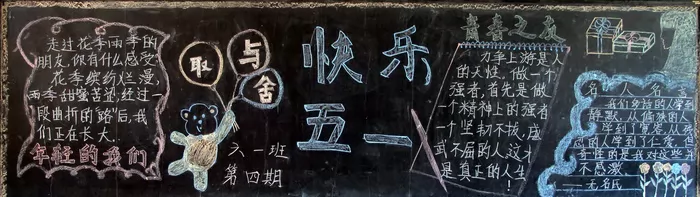 走过花季雨季的
朋友,你有什么感受
花季缤纷烂漫,
雨季甜蜜苦涩,经过一
段曲折的“路”后,我
们正在长大。
年轻的我们
取与舍
六一班
第四期
快乐
五一
青春之友
力争上游是人
的天性,做一个
强者,首先是做
一个精神上的强者
一个坚韧不拔,威
武不屈的人,这才
是真正的人生!
名人名言
静默,从偏狭的人
学到了宽容,从
恶的人学到了仁爱,
奇怪的是我对这些
不感激
——无名氏